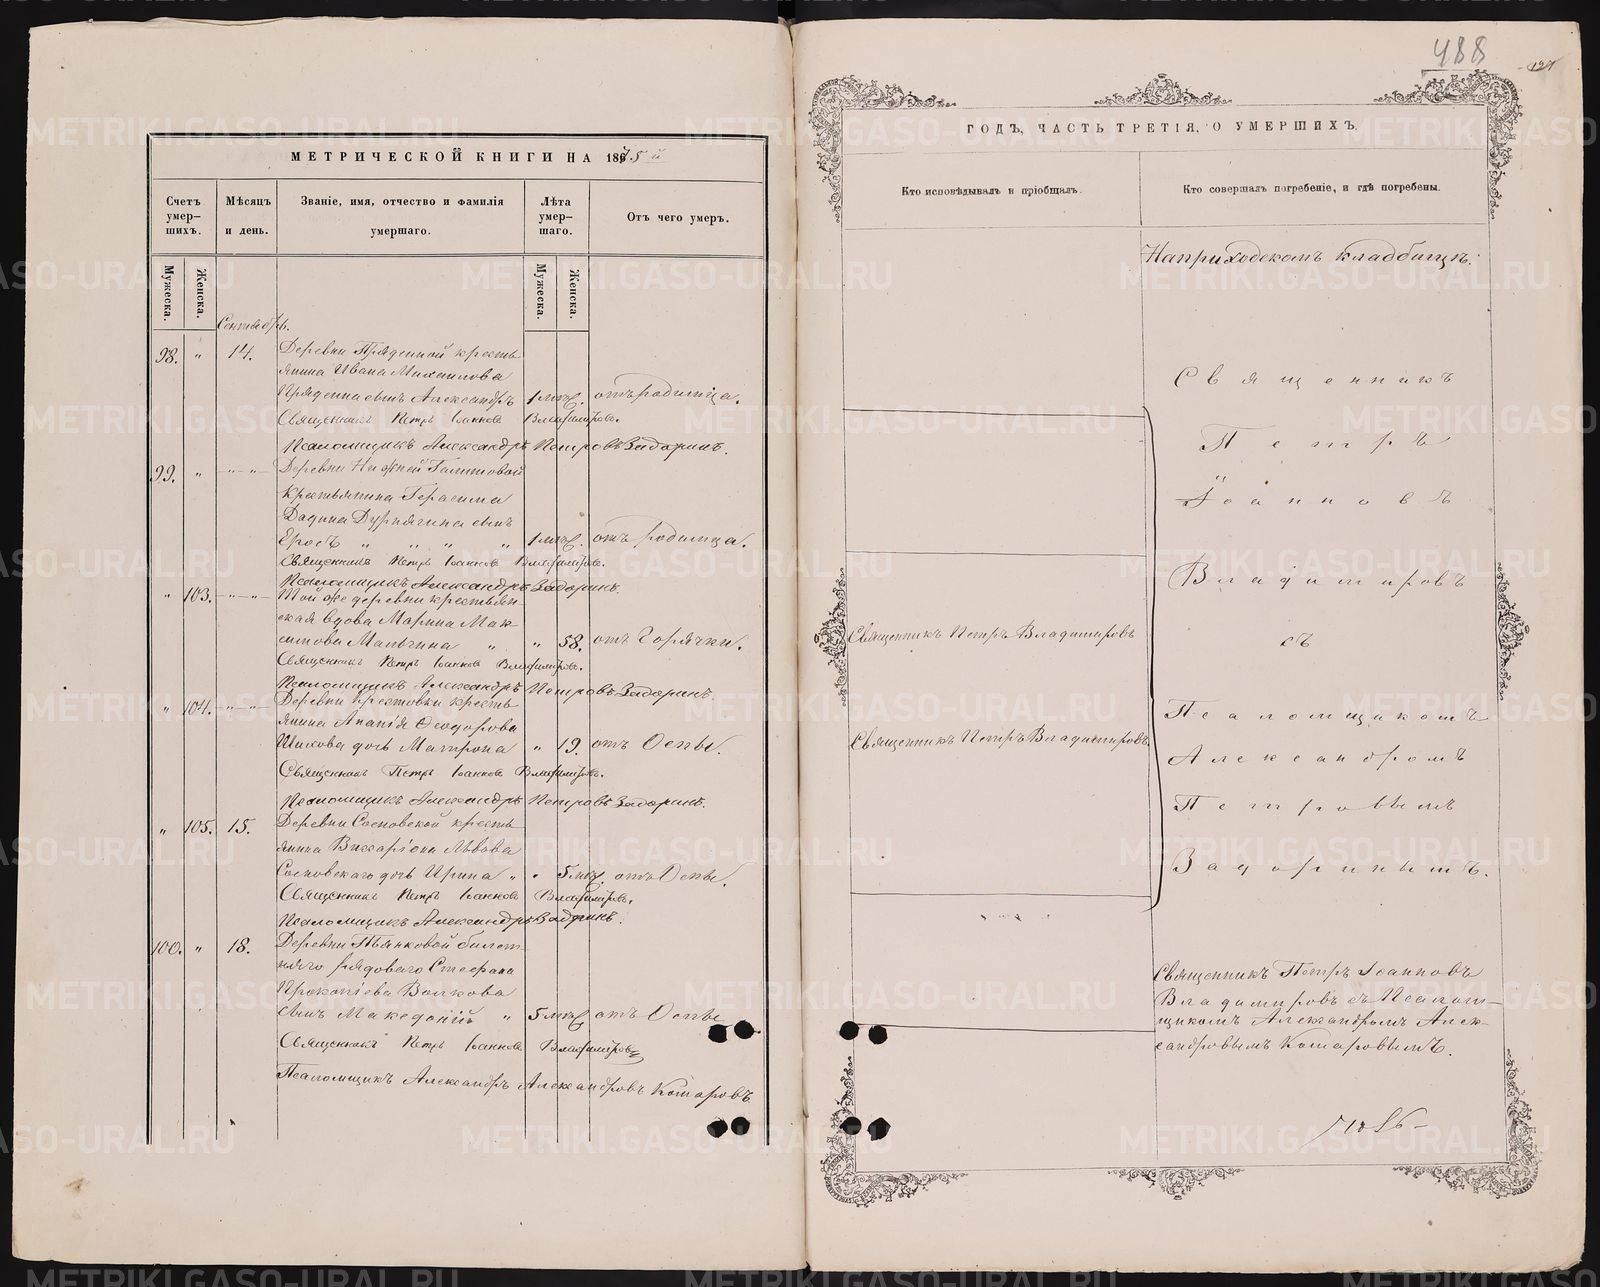 МЕТРИЧЕСКОЙ КНИГИ НА 1875й
Счетъ умер-шихъ.
Мѣсяцъ и день.
Званіе, имя, отчество и фамилія умершаго.
Лѣта умер-шаго.
Отъ чего умеръ.
Мужеска.
Женска.
Мужеска.
Женска.
Сентябрь.
98. " 14. Деревни Пряденной кресть-
янина Ивана Михаилова
Пряденна сынъ Александръ 1 мѣс. отъ родимца.
Священникъ Петръ Іоанновъ Владиміровъ.
Псаломщикъ Александръ Петровъ Задоринъ.
99. " -"-"- Деревни Нижней
Крестьянина Герасима
сынъ
" " " " 1 мѣс. отъ родимца.
Священникъ Петръ Іоанновъ Владиміровъ.
Псаломщикъ Александръ Задоринъ.
" 103. -"-"- Той же деревни крестьян-
ская вдова Марина Мак-
симова Мальгина " " 58. отъ Горячки.
Священникъ Петръ Іоанновъ Владиміровъ.
Псаломщикъ Александръ Петровъ Задоринъ.
" 104. -"-"- Деревни Крестовки кресть-
янина Ананія Ѳеодорова
Шихова дочь Матрона " 19. отъ Оспы.
Священникъ Петръ Іоанновъ Владиміровъ.
Псаломщикъ Александръ Петровъ Задоринъ.
" 105. 15. Деревни Сосновской кресть-
янина Виссаріона Львова
Сосновскаго дочь Ирина " " 5 мѣс. отъ Оспы.
Священникъ Петръ Іоанновъ Владиміровъ.
Псаломщикъ Александръ Задоринъ.
100. " 18. Деревни Пьянковой билет-
наго рядоваго Стефана
Прокопіева Волкова
сынъ Македоній " 5 мѣс. отъ Оспы
Священникъ Петръ Іоанновъ Владиміровъ
Псаломщикъ Александръ Александровъ Комаровъ.
488
127
ГОДЪ, ЧАСТЬ ТРЕТІЯ, О УМЕРШИХЪ.
Кто исповѣдывалъ и пріобщалъ.
Кто совершалъ погребеніе, и гдѣ погребены.
На приходскомъ кладбищѣ.
Священникъ
Петръ
Іоанновъ
Владиміровъ
Священникъ Петръ Владиміровъ
съ
Псаломщикомъ
Священникъ Петръ Владиміровъ.
Александромъ
Петровымъ
Задоринымъ.
Священникъ Петръ Іоанновъ
Владиміровъ съ Псалом-
щикомъ Александромъ Алек-
сандровымъ Комаровымъ.
METRIKI.GASO-URAL.RU